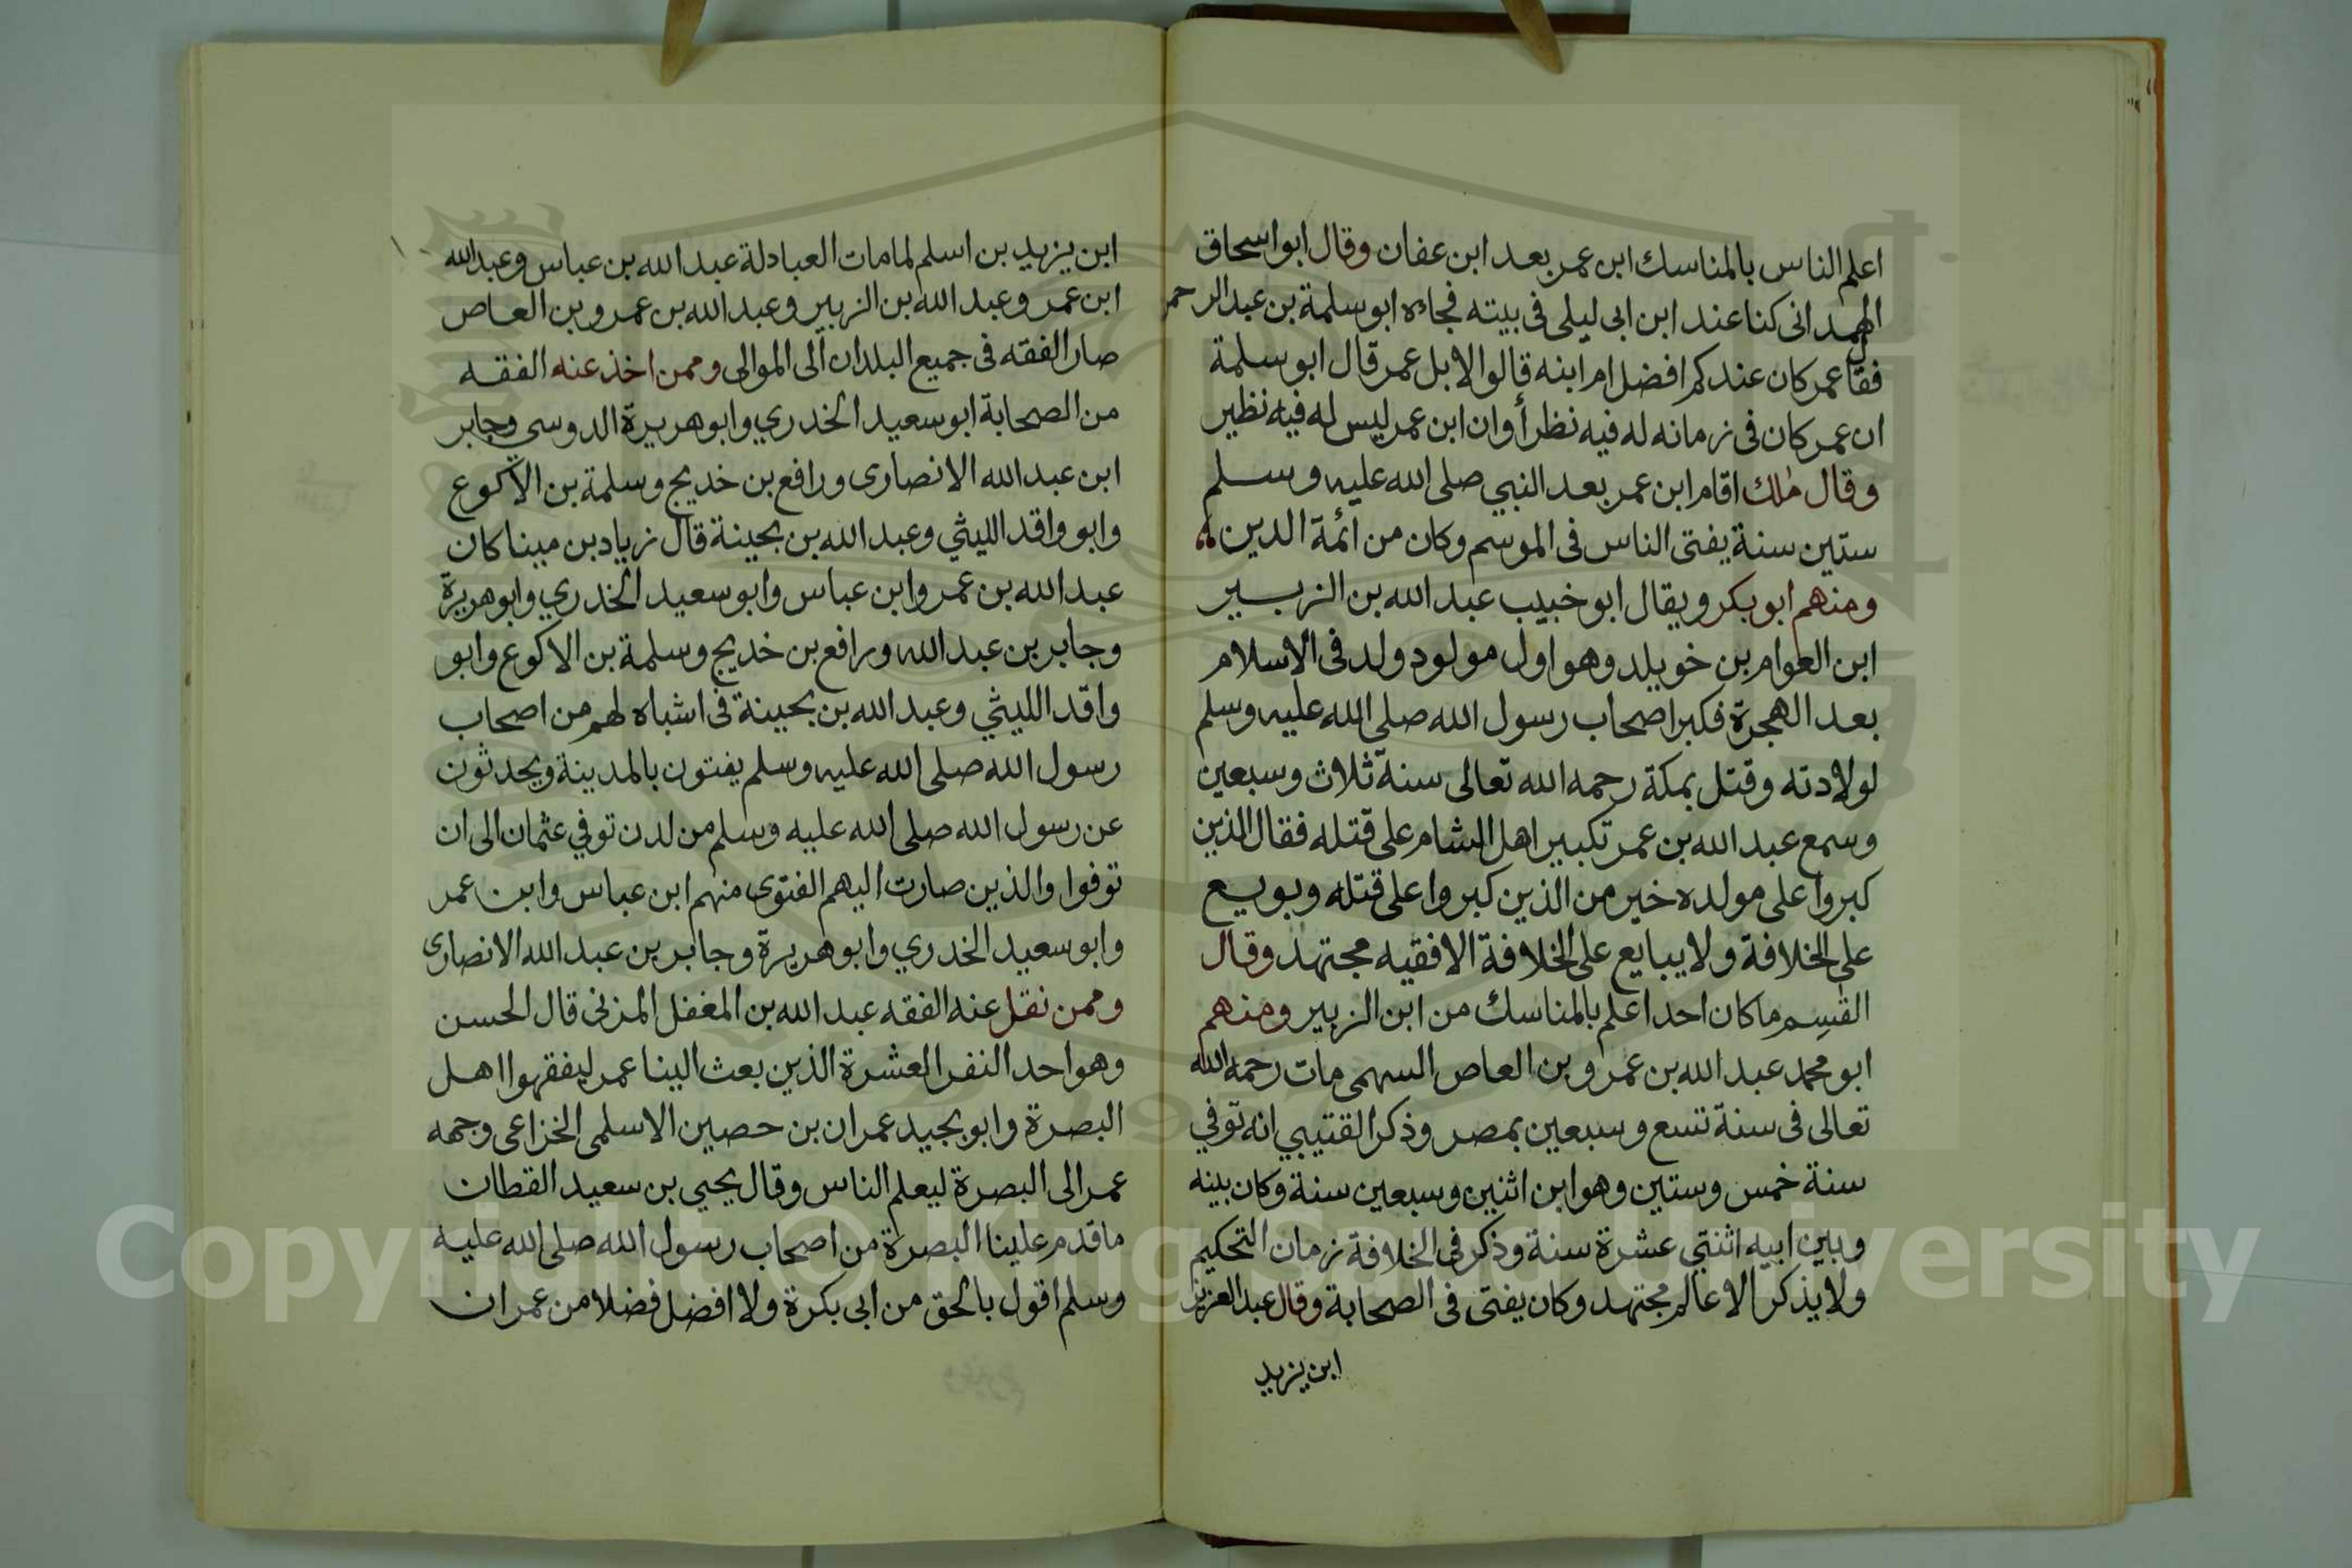 اعلم الناس بالمناسك ابن عمر بعد ابن عفان وقال ابواسحاق
الهمداني كنا عند ابن ابي ليلى فى بيته فجاءه ابو سلمة بن عبد الرحمن
فقال عمر كان عندكم افضل ام ابنه قالوا لا بل عمر قال ابو سلمة
ان عمر كان فى زمانه له فيه نظرأ وان ابن عمر ليس له فيه نظير
وقال ملك اقام ابن عمر بعد النبي صلى الله عليه وسلم
ستين سنة يفتى الناس فى الموسم وكان من ائمة الدين
ومنهم ابو بكر ويقال ابو خبيب عبد الله بن الزبير
ابن العوام بن خويلد وهو اول مولود ولد فى الاسلام
بعد الهجرة فكبر اصحاب رسول الله صلى الله عليه وسلم
لولادته وقتل بمكة رحمه الله تعالى سنة ثلاث وسبعين
وسمع عبد الله بن عمر تكبير اهل الشام على قتله فقال الذين
كبروا على مولده خير من الذين كبروا على قتله وبويع
على الخلافة ولا يبايع على الخلافة الا فقيه مجتهد وقال
القسم ما كان احد اعلم بالمناسك من ابن الزبير ومنهم
ابو محمد عبد الله بن عمرو بن العاص السهمى مات رحمه الله
تعالى فى سنة تسع وسبعين بمصر وذكر القتيبي انه توفي
سنة خمس وستين وهو ابن اثنين وسبعين سنة وكان بينه
وبين ابيه اثنتي عشرة سنة وذكر في الخلافة زمان التحكيم
ولا يذكر الا عالم مجتهد وكان يفتى فى الصحابة وقال عبد العزيز
ابن يزيد
ابن يزيد بن اسلم لما مات العبادلة عبد الله بن عباس وعبد الله
ابن عمر وعبد الله بن الزبير وعبد الله بن عمرو بن العاص
صار الفقه فى جميع البلدان الى الموالى وممن اخذ عنه الفقه
من الصحابة ابو سعيد الخدري وابو هريرة الدوسي وجابر
ابن عبد الله الانصارى ورافع بن خديج وسلمة بن الاكوع
وابو واقد الليثي وعبد الله بن بحينة قال زياد بن مينا كان
عبد الله بن عمر وابن عباس وابو سعيد الخدري وابو هريرة
وجابر بن عبد الله ورافع بن خديج وسلمة بن الاكوع وابو
واقد الليثي وعبد الله بن بحينة فى اشباه لهم من اصحاب
رسول الله صلى الله عليه وسلم يفتون بالمدينة ويحدثون
عن رسول الله صلى الله عليه وسلم من لدن توفي عثمان الى ان
توفوا والذين صارت اليهم الفتوى منهم ابن عباس وابن عمر
وابو سعيد الخدري وابو هريرة وجابر بن عبد الله الانصارى
وممن نقل عنه الفقه عبد الله بن المغفل المزنى قال الحسن
وهو احد النفر العشرة الذين بعث الينا عمر ليفقهوا اهل
البصرة وابو بجيد عمران بن حصين الاسلمى الخزاعى وجهه
عمر الى البصرة ليعلم الناس وقال يحيي بن سعيد القطان
ما قدم علينا البصرة من اصحاب رسول الله صلى الله عليه
وسلم اقول بالحق من ابى بكرة ولا افضل فضلا من عمران
Copyright © King Saud University